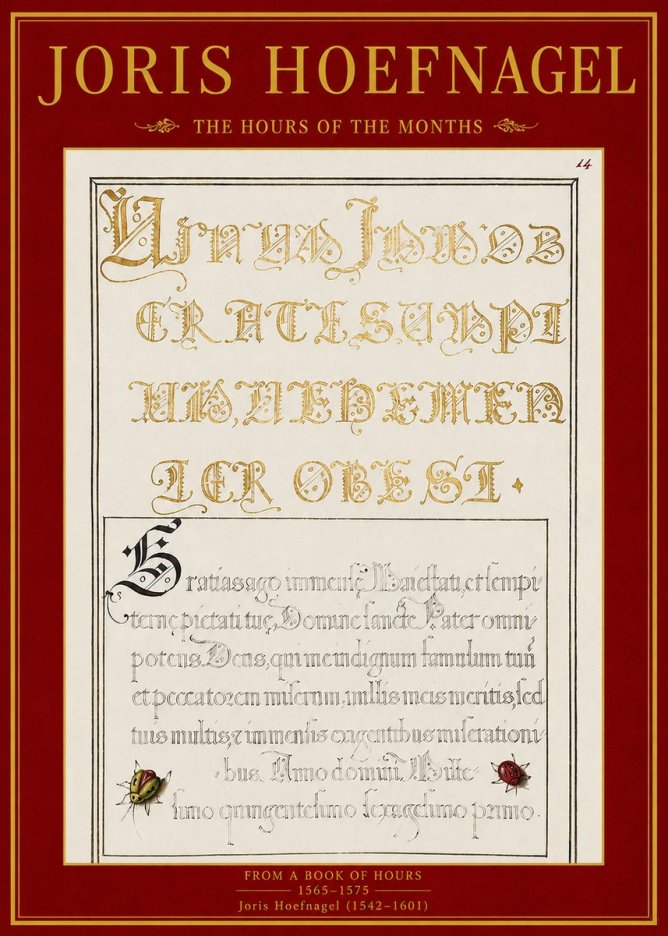 JORIS HOEFNAGEL
THE HOURS OF THE MONTHS
14
VINUM IMMOD
ERATE SUMPT
UM, VEHEMEN
TER OBEST.
Gratias ago immensę Maiestati, et sempi-
ternę pietati tuę, Domine sancte Pater omni-
potens Deus, qui me indignum famulum tuū
et peccatorem miserum, nullis meis meritis, sed
tuis multis, & immensis exigentibus miserationi-
bus. Anno dominī Mille-
simo quingentesimo sexagesimo primo.
FROM A BOOK OF HOURS
1565–1575
Joris Hoefnagel (1542–1601)